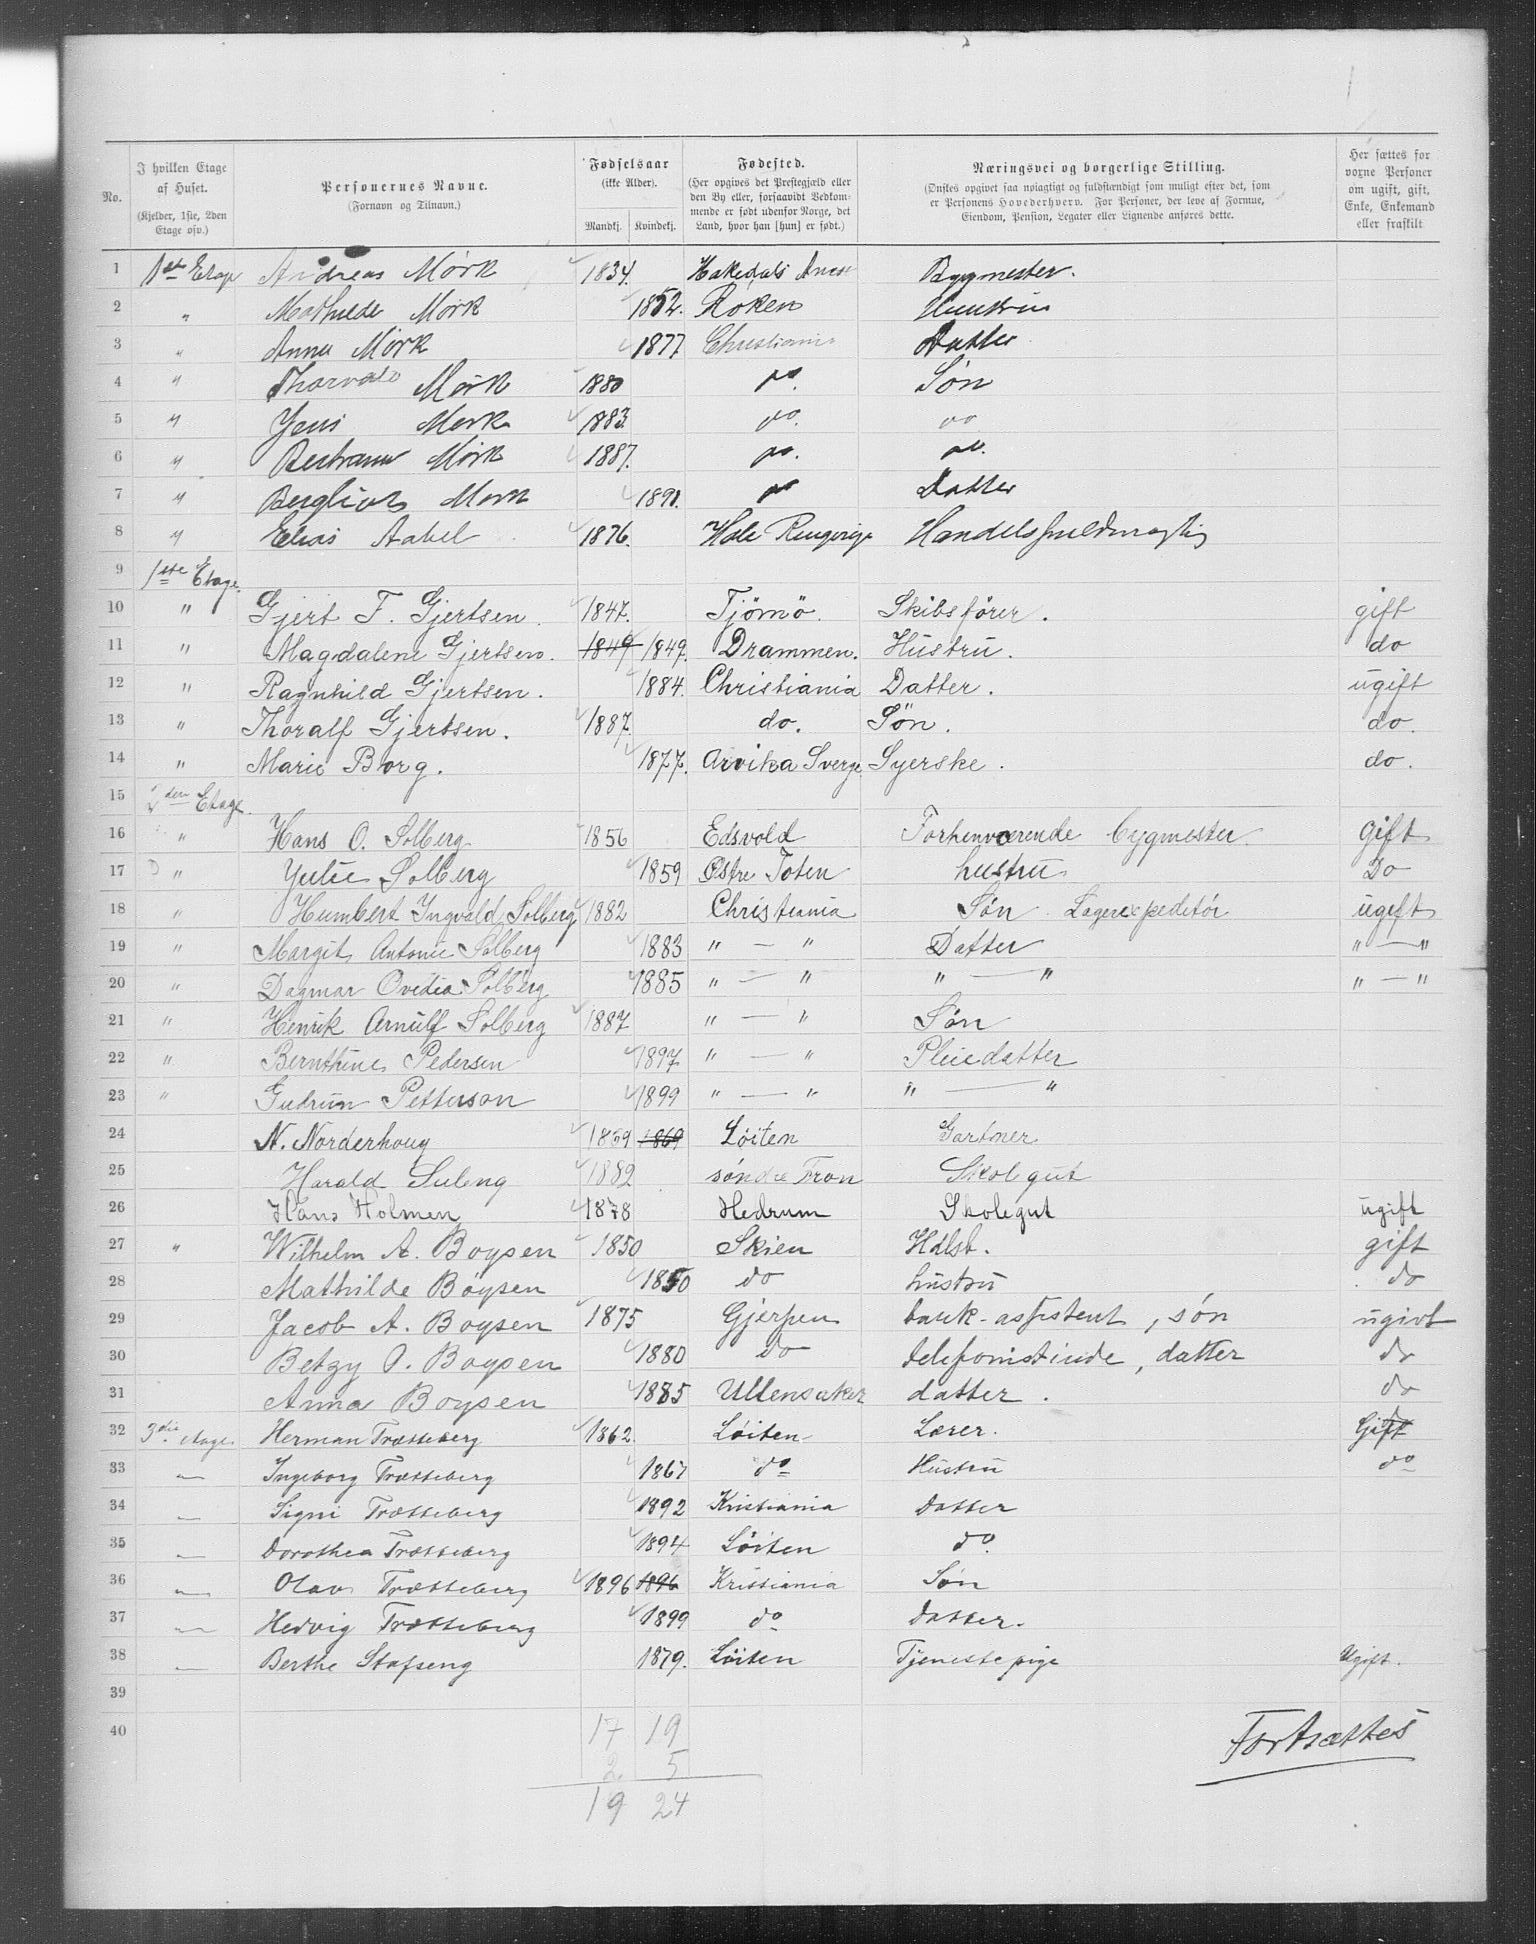 No. | I hvilken Etage af Huset. (Kjelder, 1ste, 2den Etage osv.) | Personernes Navne. (Fornavn og Tilnavn.) | Fødselsaar (ikke Alder). Mandkj. Kvindekj. | Fødested. (Her opgives det Prestegjæld eller den By eller, forsaavidt Vedkommende er født udenfor Norge, det Land, hvor han [hun] er født.) | Næringsvei og borgerlige Stilling. (Ønskes opgivet saa nøiagtigt og fuldstændigt som muligt efter det, som er Personens Hovederhverv. For Personer, der leve af Formue, Eiendom, Pension, Legater eller Lignende anføres dette. | Her sættes for voxne Personer om ugift, gift, Enke, Enkemand eller fraskilt
1 1ste Etage Andreas Mørk 1834. Hakedals Bygmester.
2 " Mathilde Mørk 1852. Røken Hustru
3 " Anna Mørk 1877 Christiania Datter
4 " Thorvald Mørk 1880 do. Søn
5 " Jens Mørk 1883. do. do
6 " Bertram Mørk 1887. do. do.
7 " Bergliot Mørk 1890. do Datter
8 " Elias Aabel 1876. Hole Ringerige Handelsfuldmægtig
9 1ste Etage.
10 " Gjert F. Gjertsen. 1847. Tjömö. Skibsförer. gift
11 " Magdalene Gjertsen. 1849 1849. Drammen. Hustru. do
12 " Ragnhild Gjertsen. 1884. Christiania Datter. ugift
13 " Thoralf Gjertsen. 1887. do. Søn. do.
14 " Marie Borg. 1877. Arvika Sverge Syerske. do.
15 2den Etage.
16 " Hans O. Solberg 1856 Edsvold Forhenværende bygmester. gift
17 " Julie Solberg 1859 Østre Toten hustru Do
18 " Humbert Ingvald Solberg 1882 Christiania Søn Lagerexpeditør ugift
19 " Margit Antonie Solberg 1883 " — " Datter " — "
20 " Dagmar Ovidia Solberg 1885 " — " " — " " — "
21 " Henrik Arnulf Solberg 1887 " — " Søn
22 " Bernthine Pedersen 1897 " — " Pleiedatter
23 " Gudrun Petterson 1899 " — " " — "
24 N. Norderhoug 1859 1869 Løiten Gartner
25 Harald Suleng 1882 søndre Fron Skolegut
26 Hans Holmen 1878 Hedrum Skolegut ugift
27 " Wilhelm A. Boysen 1850 Skien Hdlsb. gift
28 Mathilde Boysen 1850 do hustru do
29 Jacob A. Boysen 1875 Gjerpen bank-assistent, søn ugivt
30 Betzy O. Boysen 1880 do telefonistinde, datter do
31 Anna Boysen 1885 Ullensaker datter. do
32 3die etage. Herman Trætteberg 1862. Løiten Lærer. Gift
33 — Ingeborg Trætteberg 1867 do Hustru do
34 — Signi Trætteberg 1892 Kristiania Datter
35 — Dorothea Trætteberg 1894 Løiten do.
36 — Olav Trætteberg 1896 1896 Kristiania Søn
37 — Hedvig Trætteberg 1899 do Datter.
38 — Berthe Stafseng 1879. Løiten Tjenestepige Ugift.
39
40 17 19
2 5
19 24
Fortsættes